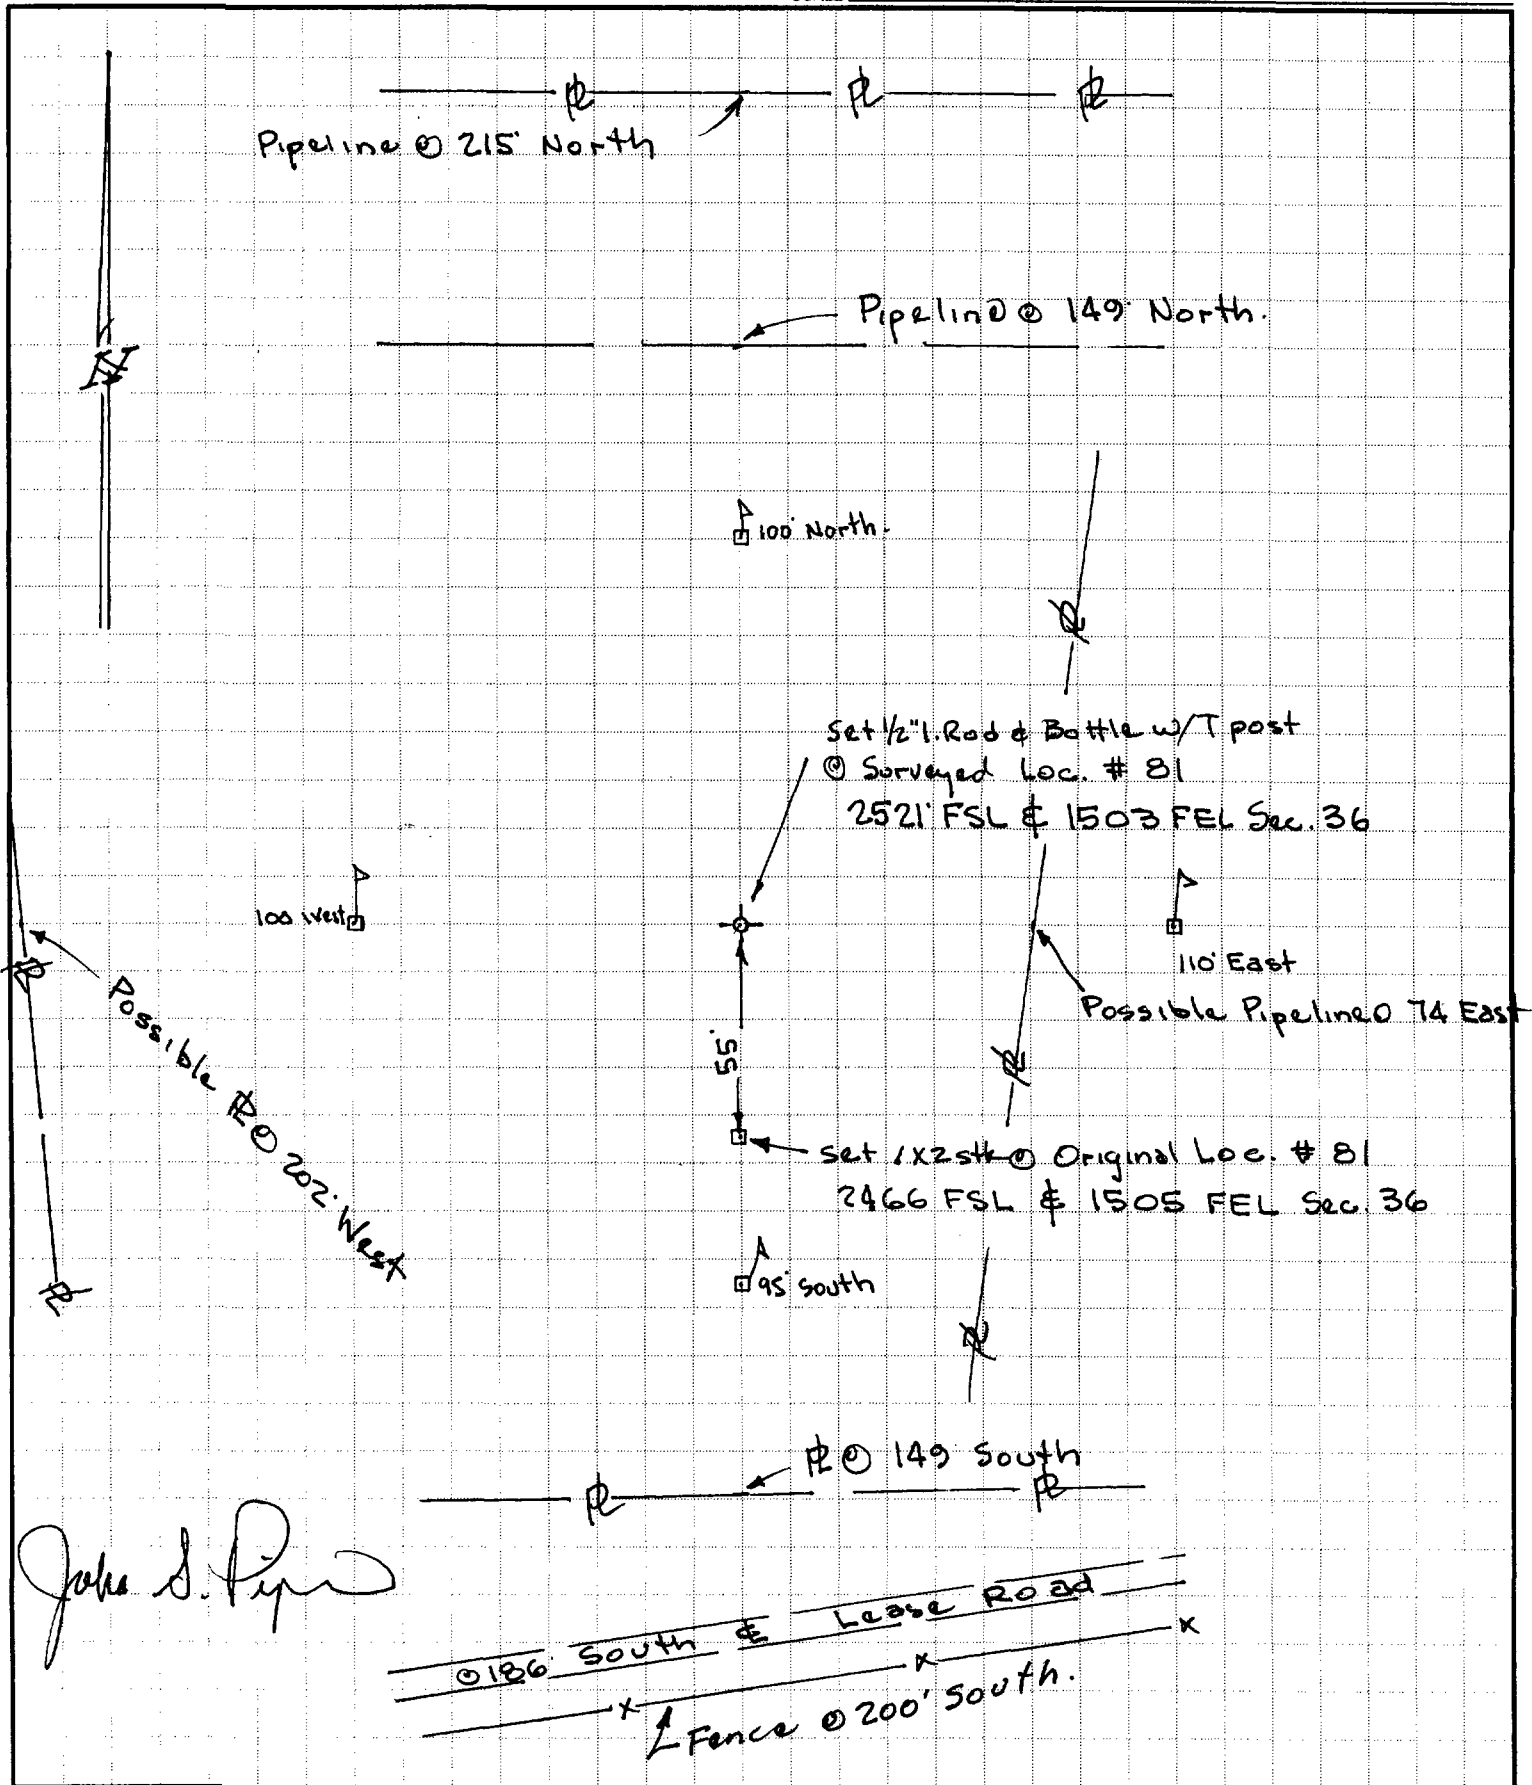 Pipeline @ 215' North
Pipeline @ 149' North.
N
100' North.
Set 1/2" I. Rod & Bottle w/T post
@ Surveyed Loc. # 81
2521' FSL & 1503 FEL Sec. 36
100 West
110' East
Possible Pipeline @ 74 East
Possible PL @ 202' West
55'
Set 1x2 stk @ Original Loc. # 81
2466 FSL & 1505 FEL Sec. 36
95' South
PL @ 149 South
John S. Piper
@ 186' South ℄ Lease Road
Fence @ 200' South.
PL
PL
PL
PL
PL
PL
PL
PL
PL
PL